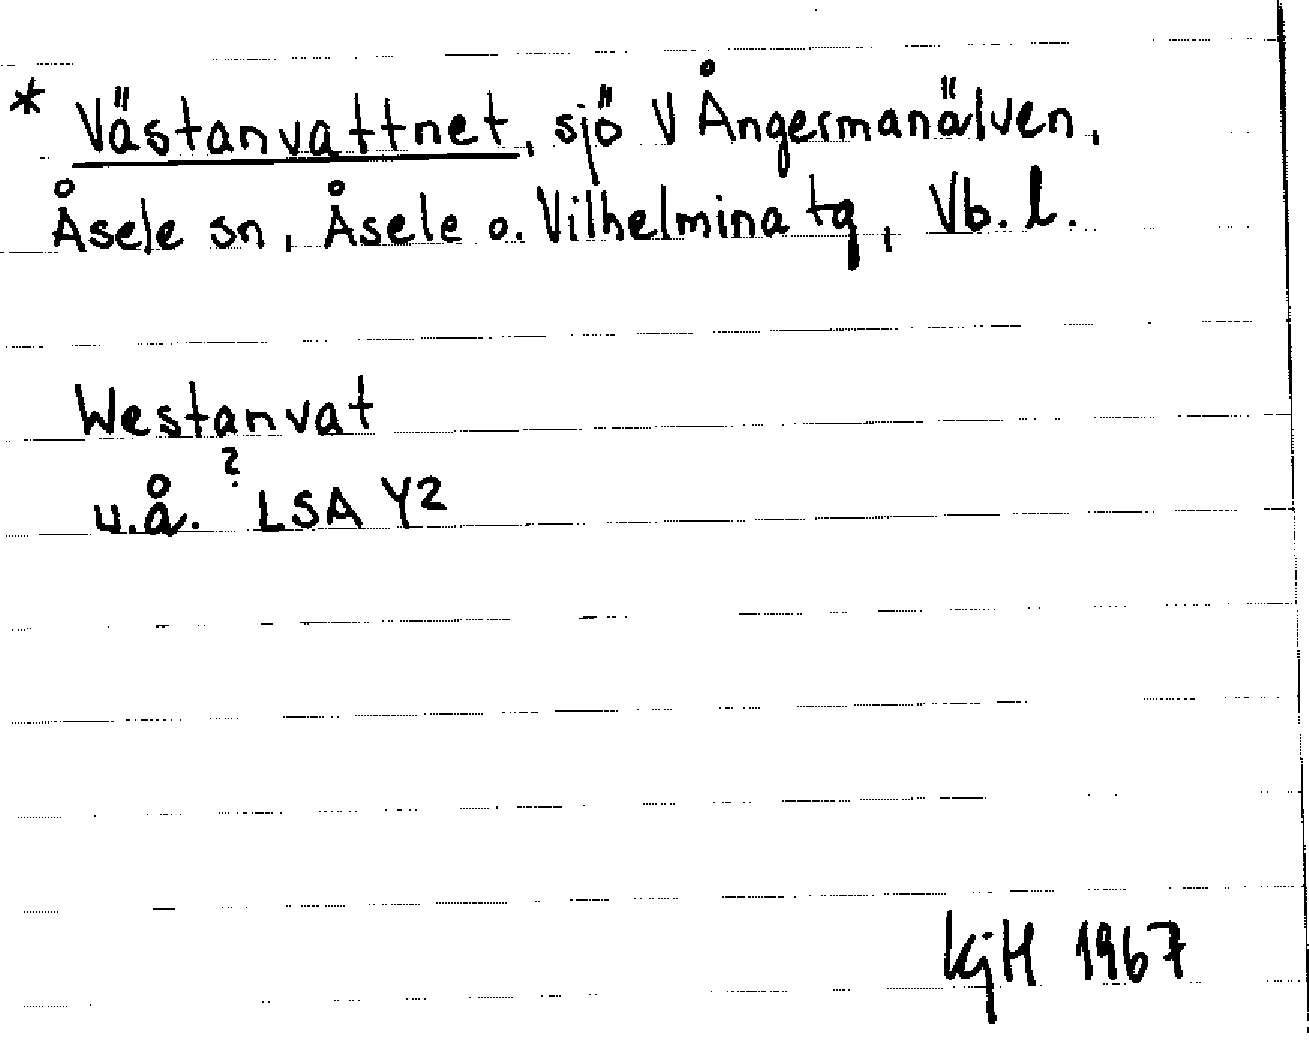 * Västanvattnet, sjö V Ångermanälven,
Åsele sn, Åsele o. Vilhelmina tg, Vb. l.
Westanvat
u.å. ? LSA Y2
KjH 1967